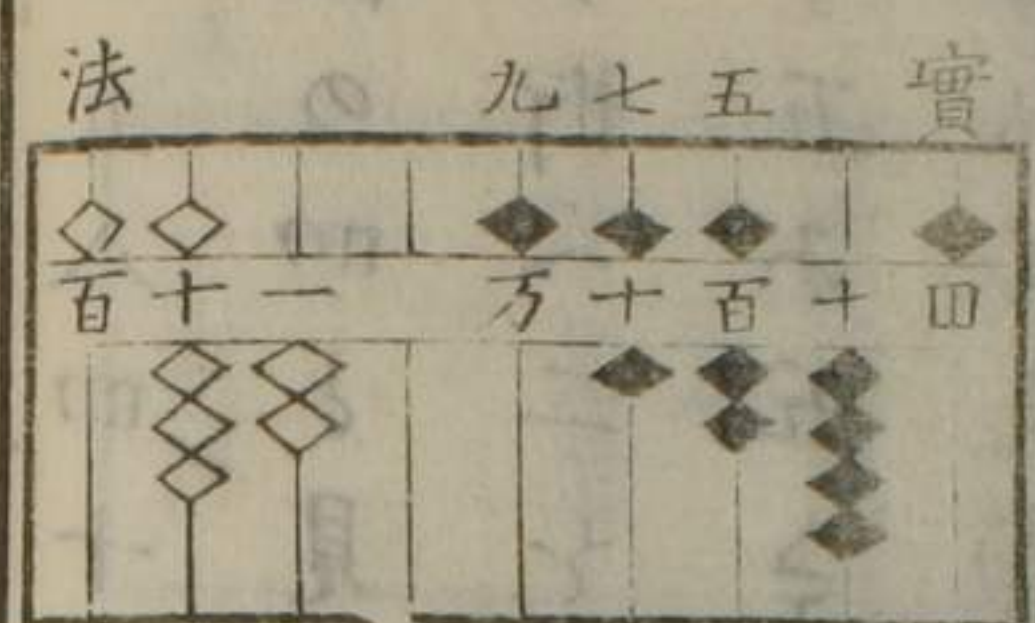 法 九 七 五 實
百 十 一 万 十 百 十